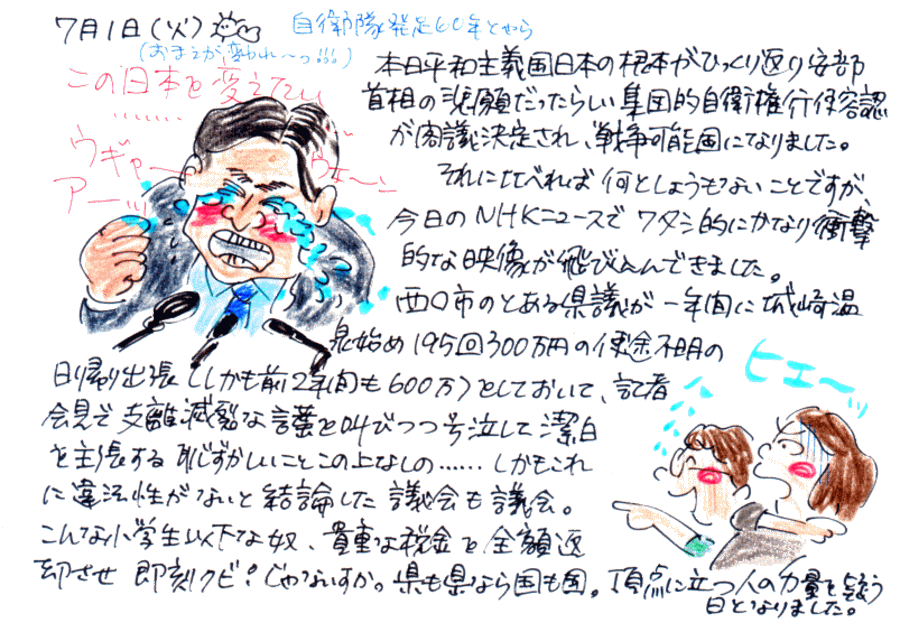 7月1日(火) 自衛隊発足60年とやら
(おまえが、変われ〜っ!!!)
この日本を変えたい
・・・・・・・
ウギャー
アーッ
ヴェ〜ン
本日平和主義国日本の根本がひっくり返り安部
首相の悲願だったらしい集団的自衛権行使容認
が閣議決定され、戦争可能国になりました。
それに比べれば何としょうもないことですが、
今日のNHKニュースでワタシ的にかなり衝撃
的な映像が飛び込んできました。
西〇市のとある県議が一年間に城崎温
泉始め195回300万円の使途不明の
日帰り出張(しかも前2年間も600万)としておいて、記者
会見で支離滅裂な言葉を叫びつつ号泣して潔白
を主張する恥ずかしいことこの上なしの……しかもこれ
に違法性がないと結論した議会も議会。
こんな小学生以下な奴、貴重な税金を全額返
却させ即刻クビ!じゃないすか。県も県なら国も国。頂点に立つ人の力量を疑う
日となりました。
ヒエ〜ッ